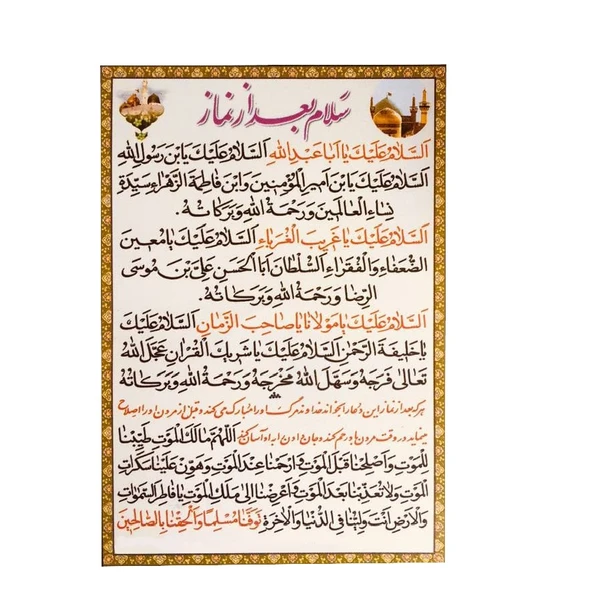 سلام بعد از نماز
اَلسَّلامُ عَلَيْكَ يا اَبا عَبْدِ اللهِ اَلسَّلامُ عَلَيْكَ يَابْنَ رَسُولِ اللهِ
اَلسَّلامُ عَلَيْكَ يَابْنَ اَميرِ الْمُؤْمِنينَ وَابْنَ فاطِمَةَ الزَّهْراءِ سَيِّدَةِ
نِساءِ الْعالَمينَ وَرَحْمَةُ اللهِ وَبَرَكاتُهُ.
اَلسَّلامُ عَلَيْكَ يا غَريبَ الْغُرَباءِ اَلسَّلامُ عَلَيْكَ يا مُعينَ
الضُّعَفاءِ وَالْفُقَراءِ اَلسُّلْطانِ اَبَا الْحَسَنِ عَلِيِّ بْنِ مُوسَى
الرِّضا وَرَحْمَةُ اللهِ وَبَرَكاتُهُ.
اَلسَّلامُ عَلَيْكَ يا مَوْلانا يا صاحِبَ الزَّمانِ اَلسَّلامُ عَلَيْكَ
يا خَليفَةَ الرَّحْمنِ اَلسَّلامُ عَلَيْكَ يا شَريكَ الْقُرْانِ عَجَّلَ اللهُ
تَعالى فَرَجَهُ وَسَهَّلَ اللهُ مَخْرَجَهُ وَرَحْمَةُ اللهِ وَبَرَكاتُهُ
هر که بعد از نماز این دعا را بخواند خداوند مرگ او را مبارک می کند و قبل از مردن او را اصلاح
مینماید و در وقت مردن با و رحم کند و جان دادن او را به او آسان کند اَللّهُمَّ مالِكَ الْمَوْتِ طَيِّبْنا
لِلْمَوْتِ وَاَصْلِحْنا قَبْلَ الْمَوْتِ وَارْحَمْنا عِنْدَ الْمَوْتِ وَهَوِّنْ عَلَيْنا سَكَراتِ
الْمَوْتِ وَلا تُعَذِّبْنا بَعْدَ الْمَوْتِ وَ اَعْرِضْنا اِلى مَلَكِ الْمَوْتِ يا فاطِرَ السَّمواتِ
وَالْاَرْضِ اَنْتَ وَلِيُّنا فِي الدُّنْيا وَالْاخِرَةِ تَوَفَّنا مُسْلِماً وَاَلْحِقْنا بِالصّالِحينَ